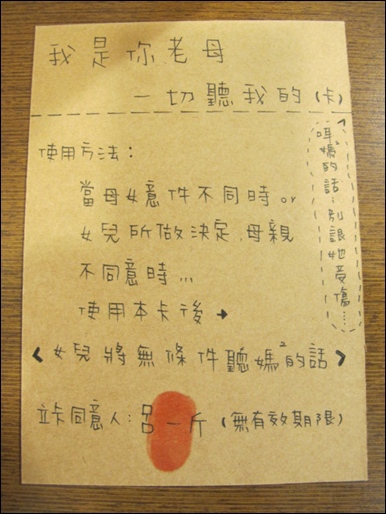 我是你老母
一切聽我的(卡)
使用方法:
當母女意件不同時or
女兒所做決定,母親
不同意時...
使用本卡後→
<女兒將無條件聽媽²的話>
立卡同意人:呂一斤 (無有效期限)
媽²的話,別讓她受傷....